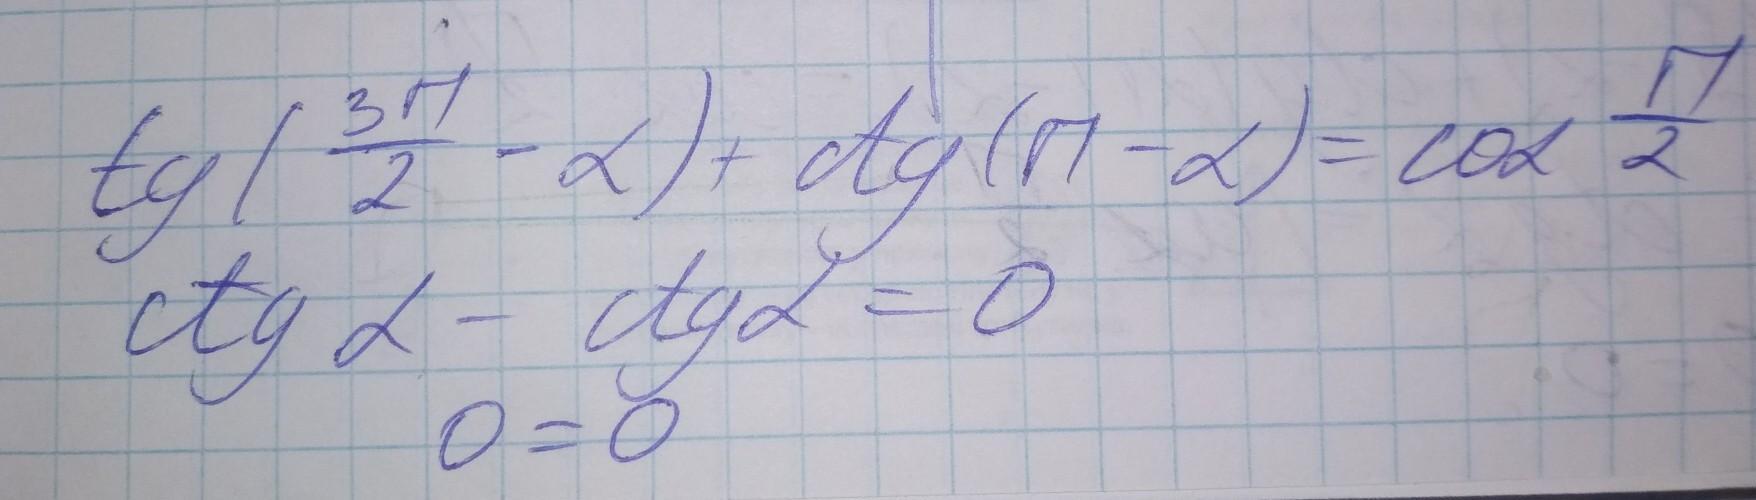 tg(3π/2 - α) + ctg(π - α) = cos π/2
ctg α - ctg α = 0
0 = 0